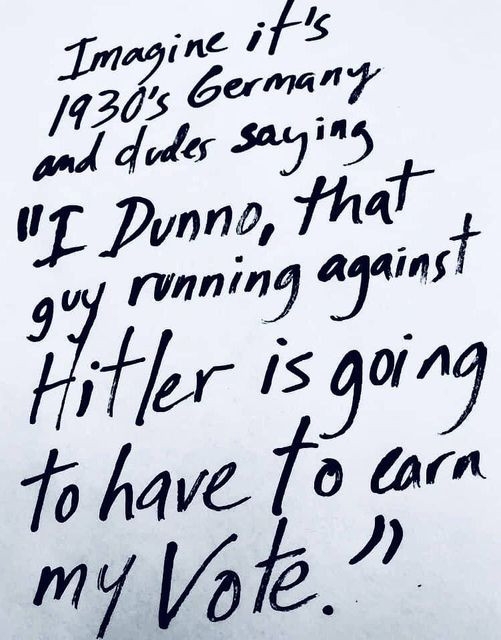 Imagine it's
1930's Germany
and dudes saying
"I Dunno, that
guy running against
Hitler is going
to have to earn
my Vote."